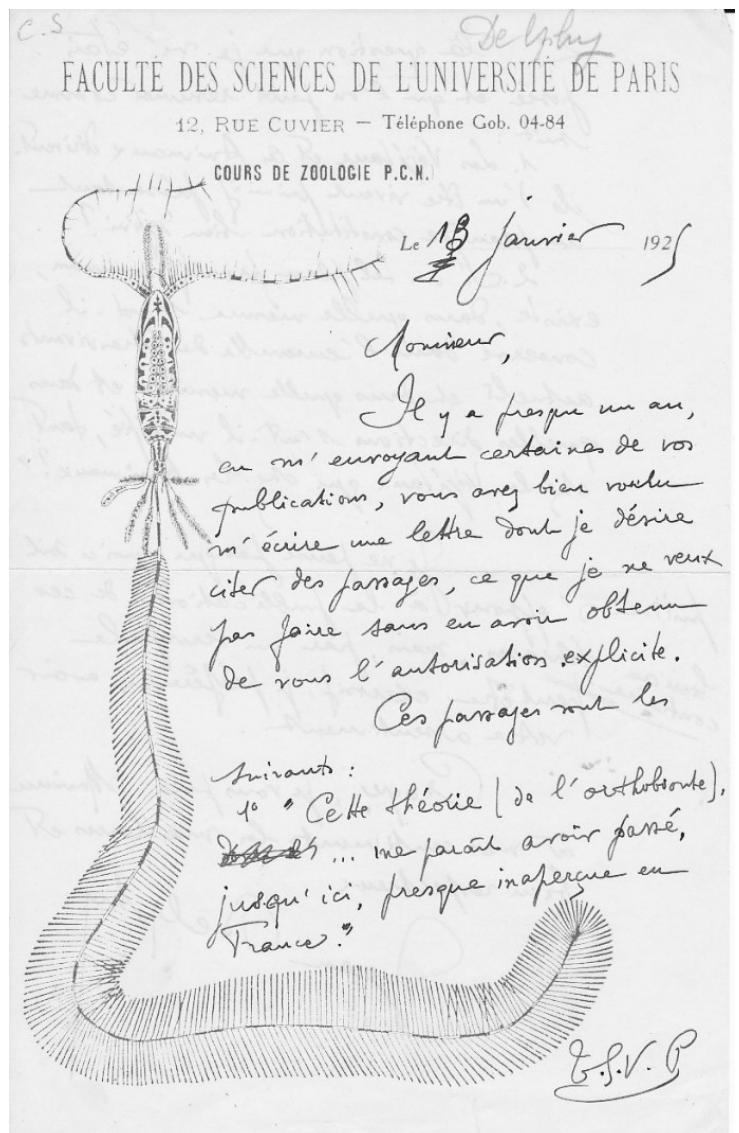 C.S
Delphy
FACULTÉ DES SCIENCES DE L'UNIVERSITÉ DE PARIS
12, RUE CUVIER — Téléphone Gob. 04-84
COURS DE ZOOLOGIE P.C.N.
Le 13 Janvier 1925
Monsieur,
Il y a presque un an,
en m'envoyant certaines de vos
publications, vous avez bien voulu
m'écrire une lettre dont je désire
citer des passages, ce que je ne veux
pas faire sans en avoir obtenu
de vous l'autorisation explicite.
Ces passages sont les
suivants :
1° "Cette théorie (de l'orthobionte),
... me paraît avoir passé,
jusqu'ici, presque inaperçue en
France."
T.S.V.P